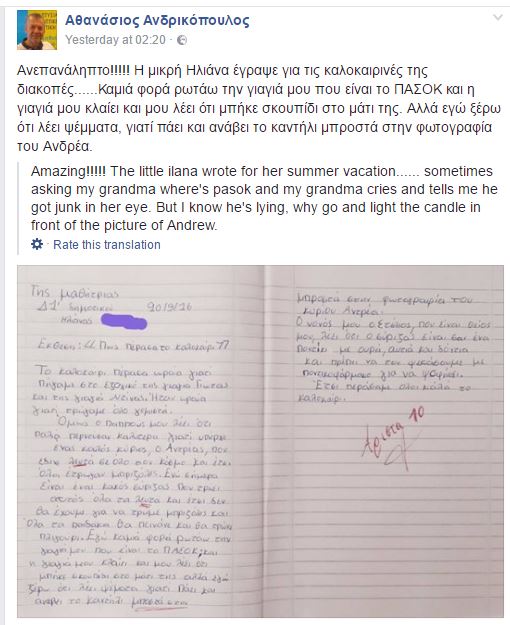 Αθανάσιος Ανδρικόπουλος
Yesterday at 02:20
Ανεπανάληπτο!!!!! Η μικρή Ηλιάνα έγραψε για τις καλοκαιρινές της
διακοπές......Καμιά φορά ρωτάω την γιαγιά μου που είναι το ΠΑΣΟΚ και η
γιαγιά μου κλαίει και μου λέει ότι μπήκε σκουπίδι στο μάτι της. Αλλά εγώ ξέρω
ότι λέει ψέμματα, γιατί πάει και ανάβει το καντήλι μπροστά στην φωτογραφία
του Ανδρέα.
Amazing!!!!! The little ilana wrote for her summer vacation...... sometimes
asking my grandma where's pasok and my grandma cries and tells me he
got junk in her eye. But I know he's lying, why go and light the candle in
front of the picture of Andrew.
Rate this translation
Της μαθήτριας
Δ1' δημοτικού 20/9/16
Ηλιάνας
Έκθεση: "Πως πέρασα το καλοκαίρι"
Το καλοκαίρι πέρασα ωραία γιατί
πήγαμε στο εξοχικό της γιαγιά
και της γιαγιά Ντίνας. Ήταν ωραία
γιατί τρώγαμε όλο
Όμως ο παππούς μου λέει ότι
παλιά περνούσαν καλύτερα γιατί υπήρχε
ένας καλός κύριος, ο Αντρέας, που
έδινε λευτά σε όλο τον κόσμο και έτσι
όλοι έτρωγαν μπριζόλες. Ενώ σήμερα
είναι ένας κακός που τρώει
αυτός όλα τα λευτα και έτσι δεν
θα έχουμε για να τρώμε μπριζόλες και
όλα τα παιδάκια θα πεινάνε και θα τρώνε
πλιγούρι. Εγώ καμιά φορά ρωτάω την
γιαγιά μου που είναι το ΠΑΣΟΚ και
η γιαγιά μου κλαίει και μου λέει ότι
μπήκε σκουπίδι στο μάτι της αλλά εγώ
ξέρω ότι λέει ψέματα γιατί πάει και
ανάβει το καντήλι μπροστά στην
μπροστά στην φωτογραφία του
κύριου Αντρέα.
Ο νονός μου ο Στάθης, που είναι θείος
μου, λέει ότι ο είναι σαν ένα
ποντίκι με ουρά, αυτιά και δόντια
και πρέπει να τον ψεκάσουμε με
ποντικοφάρμακο για να ψοφήσει.
Έτσι περάσαμε όλοι καλά το
καλοκαίρι.
Άριστα 10